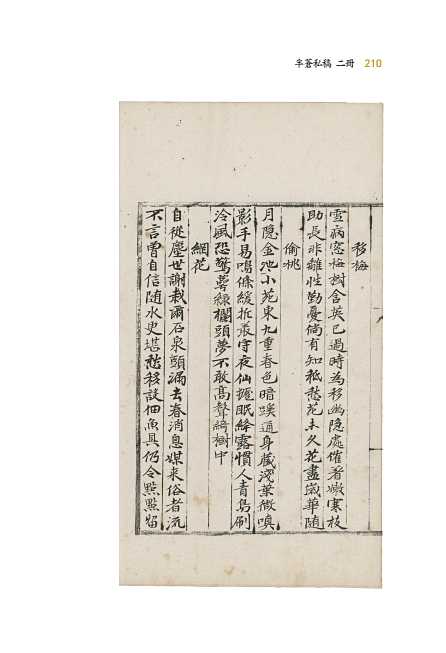 半蒼私稿 二冊 210
移梅
雪病窓梅樹含英已過時為移幽隱處催著嫩寒枝
助長非難性勤憂倘有知秪愁花未久花盡歲華随
偷桃
月隠金池小苑東九重春色暗蹊通身藏淺葉微嗅
影手易鳴條緩折
守夜仙
眠絳露慣人青鳥刷
冷風恐驚
欄頭夢不敢髙聲綺樹中
網花
自從塵世謝栽爾石泉頭漏去春消息媒来俗者流
不言曽自信随水更堪愁移設佃魚具仍令點點留